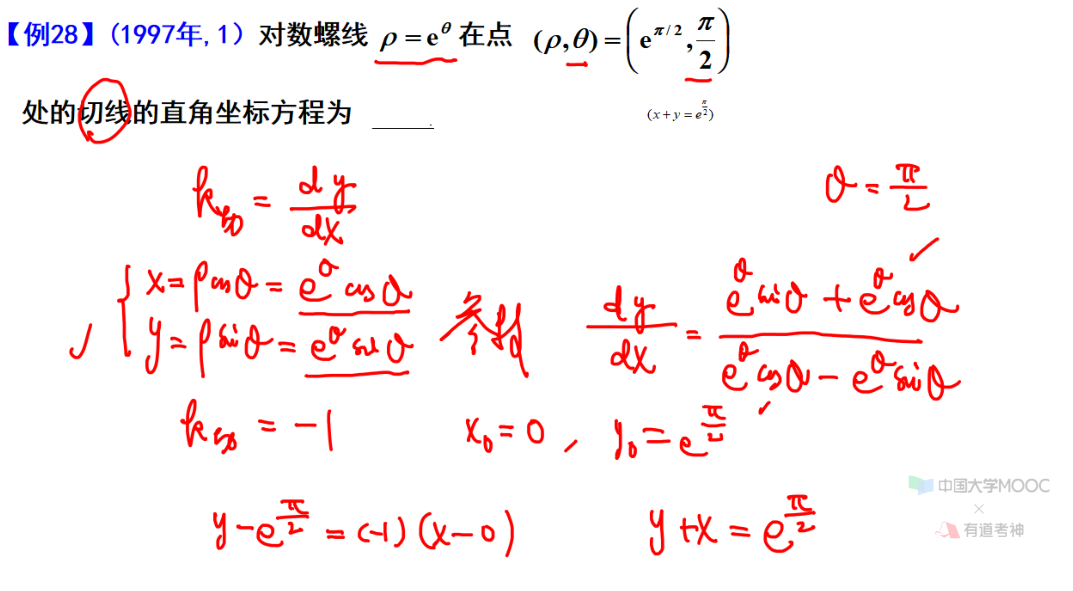 【例28】(1997年,1) 对数螺线 ρ = e^θ 在点 (ρ,θ) = (e^{π/2}, π/2)
处的切线的直角坐标方程为 ______.
(x + y = e^{π/2})
k切 = dy/dx
θ = π/2
{ x = ρcosθ = e^θ cosθ
y = ρsinθ = e^θ sinθ
dy/dx = (e^θ sinθ + e^θ cosθ)/(e^θ cosθ - e^θ sinθ)
k切 = -1
x₀ = 0 , y₀ = e^{π/2}
y - e^{π/2} = (-1)(x - 0)
y + x = e^{π/2}
中国大学MOOC
×
有道考神